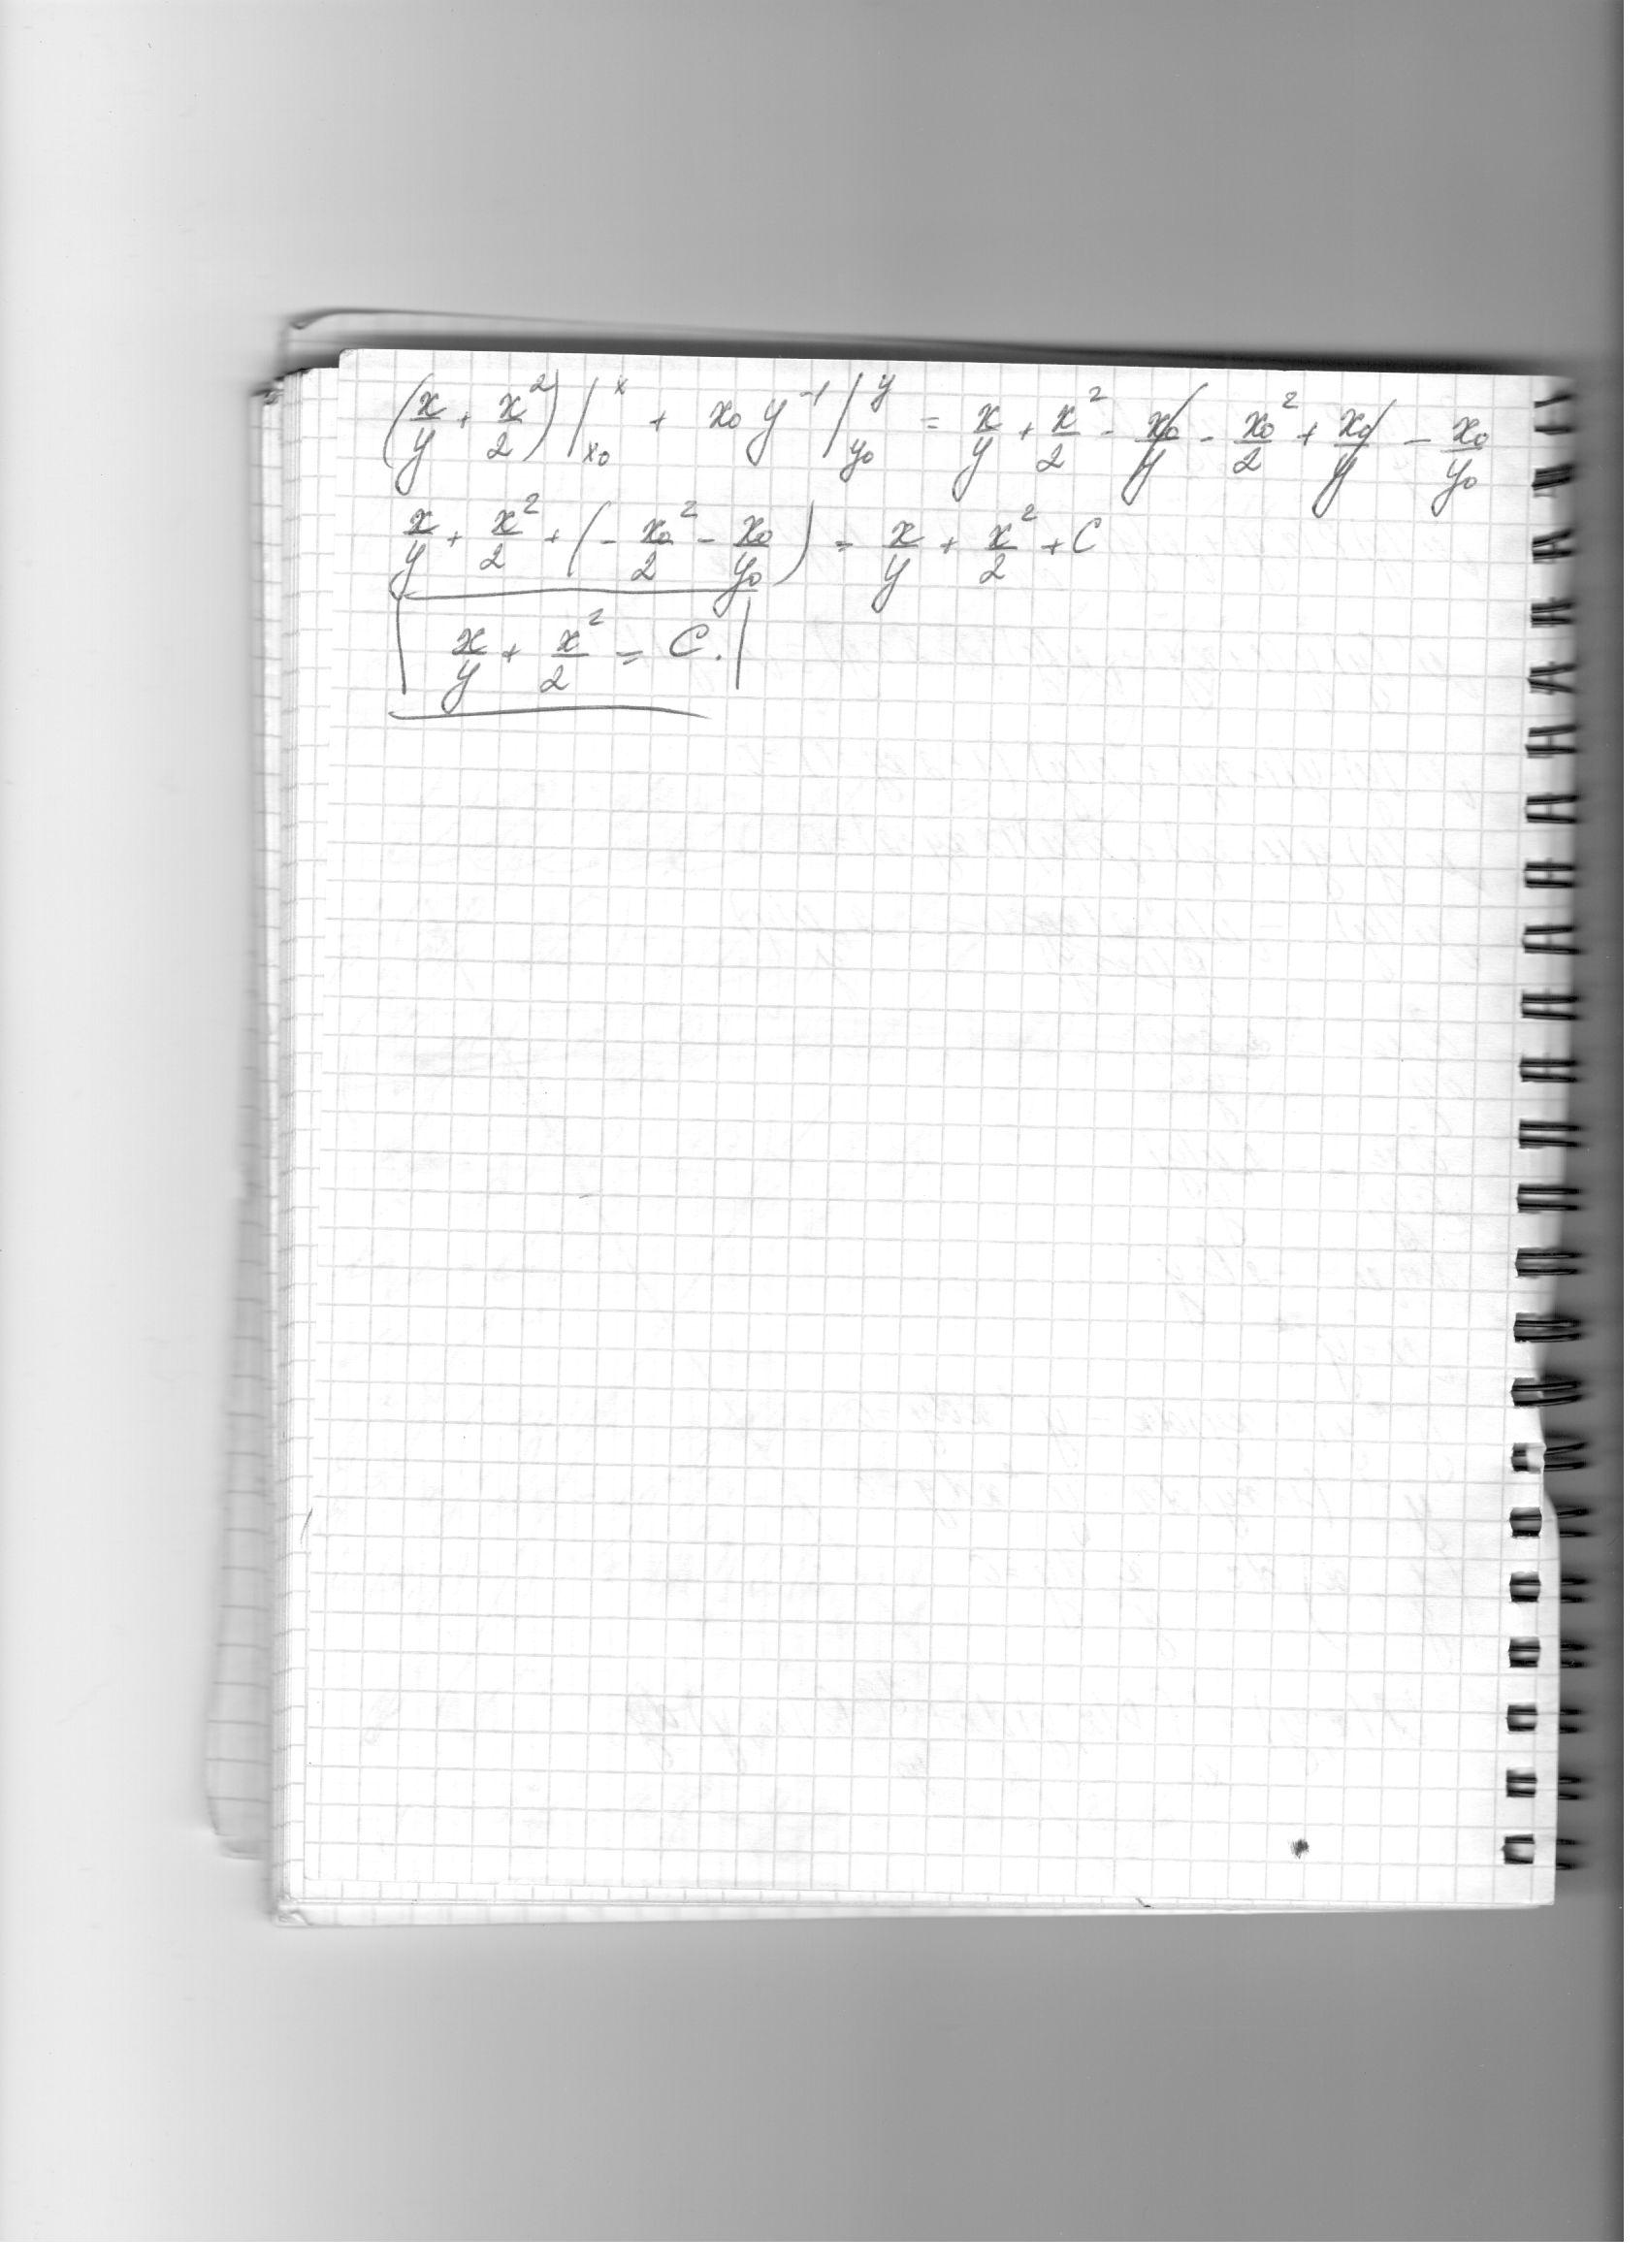 (x/y + x²/2)|ₓ₀ˣ + x₀y⁻¹|_y₀^y = x/y + x²/2 - x₀/y - x₀²/2 + x₀/y - x₀/y₀
x/y + x²/2 + (- x₀²/2 - x₀/y₀) = x/y + x²/2 + C
x/y + x²/2 = C.